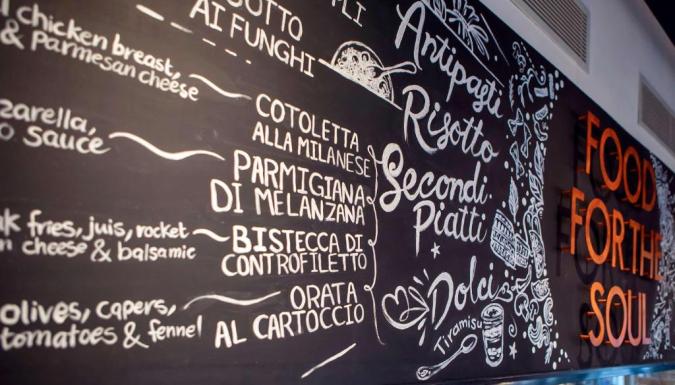 chicken breast,
& Parmesan cheese
sauce
fries, juis, rocket
cheese & balsamic
olives, capers,
tomatoes & fennel
AI FUNGHI
COTOLETTA
ALLA MILANESE
PARMIGIANA
DI MELANZANA
BISTECCA DI
CONTROFILETTO
ORATA
AL CARTOCCIO
Antipasti
Risotto
Secondi
Piatti
Dolci
Tiramisu
FOOD
FOR THE
SOUL